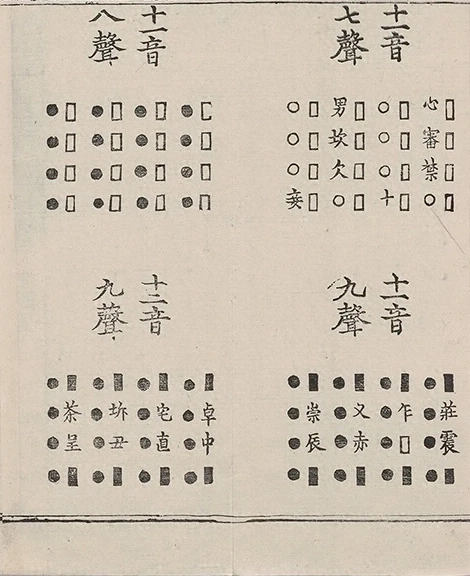 十一音
七聲
□□□□
心審禁○
□□□□
○○○十
□□□□
男坎欠○
□□□□
○○○妾
十一音
八聲
□□□□
●●●●
□□□□
●●●●
□□□□
●●●●
□□□□
●●●●
十一音
九聲
■莊震■
●●●●
■乍□■
●●●●
■叉赤■
●●●●
■崇辰■
●●●●
十二音
九聲
■卓中■
●●●●
■宅直■
●●●●
■坼丑■
●●●●
■茶呈■
●●●●